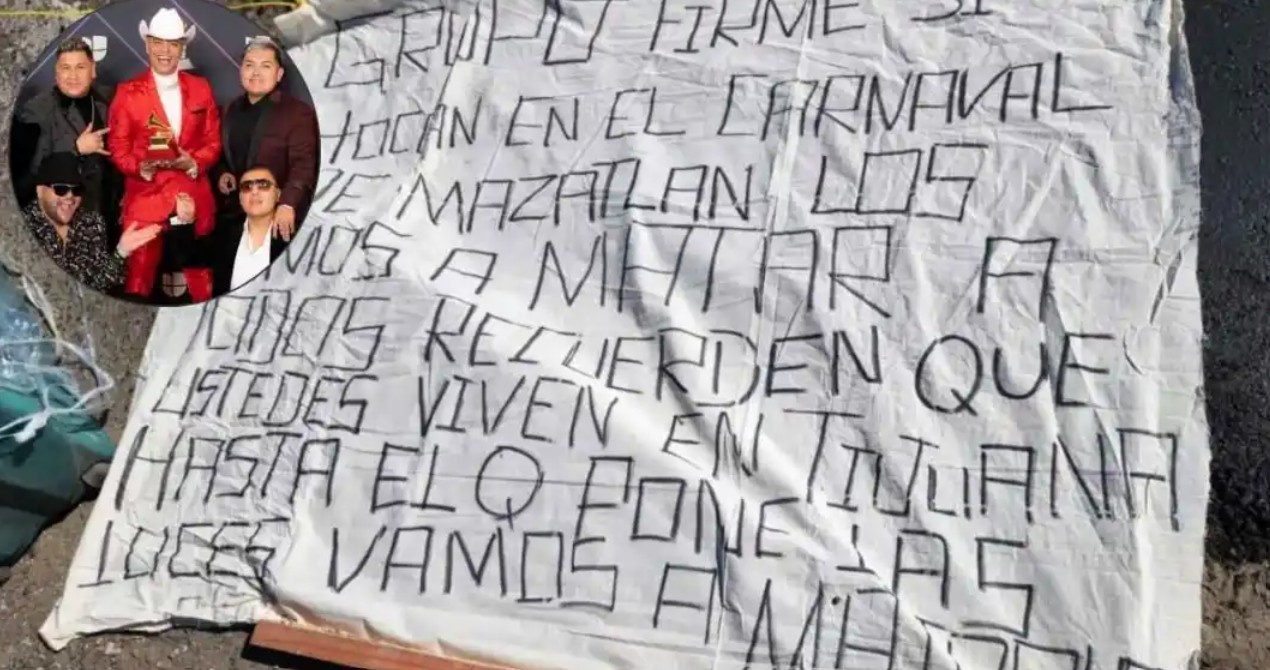 GRUPO FIRME SI
TOCAN EN EL CARNAVAL
DE MAZATLAN LOS
AMOS A MATAR A
TODOS RECUERDEN QUE
USTEDES VIVEN EN TIJUANA
HASTA EL Q PONE LAS
LUCES VAMOS A